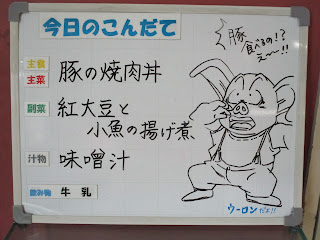 今日のこんだて
主食
主菜
豚の焼肉丼
副菜
紅大豆と
小魚の揚げ煮
汁物
味噌汁
飲み物
牛乳
豚
食べるの!?
え〜!!
ウーロンだよ!!